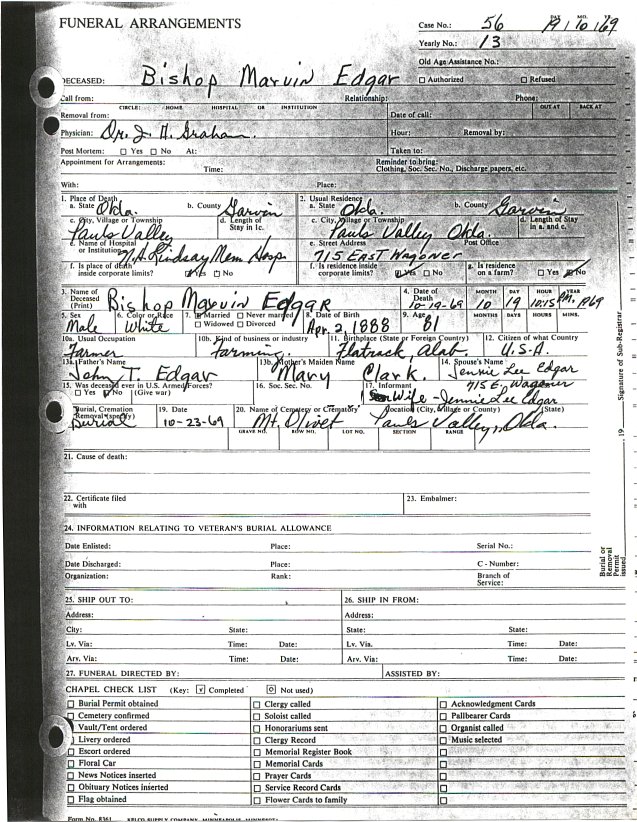 FUNERAL ARRANGEMENTS
Case No.: 56 DAY MO. YR. 19/10/69
Yearly No.: 13
Old Age Assistance No.:
DECEASED: Bishop Marvin Edgar ☐ Authorized ☐ Refused
Call from: Relationship: Phone:
CIRCLE: HOME HOSPITAL OR INSTITUTION OUT AT BACK AT
Removal from: Date of call:
Physician: Dr. J. H. Graham. Hour: Removal by:
Post Mortem: ☐ Yes ☐ No At: Taken to:
Appointment for Arrangements: Reminder to bring:
Time: Clothing, Soc. Sec. No., Discharge papers, etc.
With: Place:
1. Place of Death 2. Usual Residence
a. State Okla. b. County Garvin a. State Okla. b. County Garvin
c. City, Village or Township d. Length of Stay in 1c. c. City, Village or Township d. Length of Stay in a. and c.
Pauls Valley Pauls Valley Okla.
e. Name of Hospital or Institution Lindsay Mem Hosp e. Street Address 715 East Wagoner Post Office
f. Is place of death inside corporate limits? ☑ Yes ☐ No f. Is residence inside corporate limits? ☑ Yes ☐ No g. Is residence on a farm? ☐ Yes ☑ No
3. Name of Deceased (Print) Bishop Marvin Edgar 4. Date of Death 10-19-69 MONTH 10 DAY 19 HOUR 10:15 P.M. YEAR 1969
5. Sex Male 6. Color or Race White 7. ☑ Married ☐ Never married ☐ Widowed ☐ Divorced 8. Date of Birth Apr. 2, 1888 9. Age 81 MONTHS DAYS HOURS MINS.
10a. Usual Occupation Farmer 10b. Kind of business or industry Farming. 11. Birthplace (State or Foreign Country) Flatrock, Alab. 12. Citizen of what Country U.S.A.
13a. Father's Name John T. Edgar 13b. Mother's Maiden Name Mary Clark. 14. Spouse's Name Jennie Lee Edgar
15. Was deceased ever in U.S. Armed Forces? ☐ Yes ☑ No (Give war) 16. Soc. Sec. No. 17. Informant 715 E. Wagoner
Wife - Jennie Lee Edgar
Burial, Cremation Removal (specify) Burial 19. Date 10-23-69 20. Name of Cemetery or Crematory Mt. Olivet Location (City, Village or County) (State) Pauls Valley, Okla.
GRAVE NO. ROW NO. LOT NO. SECTION RANGE
21. Cause of death:
22. Certificate filed with 23. Embalmer:
24. INFORMATION RELATING TO VETERAN'S BURIAL ALLOWANCE
Date Enlisted: Place: Serial No.:
Date Discharged: Place: C - Number:
Organization: Rank: Branch of Service:
25. SHIP OUT TO: 26. SHIP IN FROM:
Address: Address:
City: State: State: State:
Lv. Via: Time: Date: Lv. Via. Time: Date:
Arv. Via: Time: Date: Arv. Via: Time: Date:
27. FUNERAL DIRECTED BY: ASSISTED BY:
CHAPEL CHECK LIST (Key: ☑ Completed ☐ Not used)
☐ Burial Permit obtained ☐ Clergy called ☐ Acknowledgment Cards
☐ Cemetery confirmed ☐ Soloist called ☐ Pallbearer Cards
Vault/Tent ordered ☐ Honorariums sent ☐ Organist called
☐ Livery ordered ☐ Clergy Record ☐ Music selected
☐ Escort ordered ☐ Memorial Register Book ☐
☐ Floral Car ☐ Memorial Cards ☐
☐ News Notices inserted ☐ Prayer Cards ☐
☐ Obituary Notices inserted ☐ Service Record Cards ☐
☐ Flag obtained ☐ Flower Cards to family ☐
Form No. 8361 KELCO SUPPLY COMPANY, MINNEAPOLIS, MINNESOTA
Burial or Removal Permit issued 19 Signature of Sub-Registrar